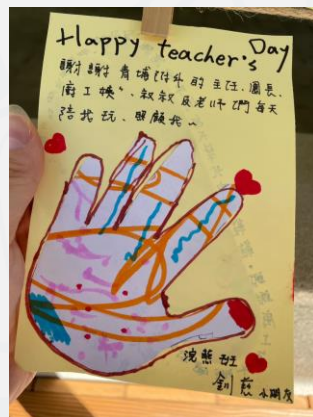 Happy teacher's Day
謝謝青埔附幼的主任、園長、
廚工姨、叔叔及老師們每天
陪我玩、照顧我~
浣熊班
劉慈 小朋友